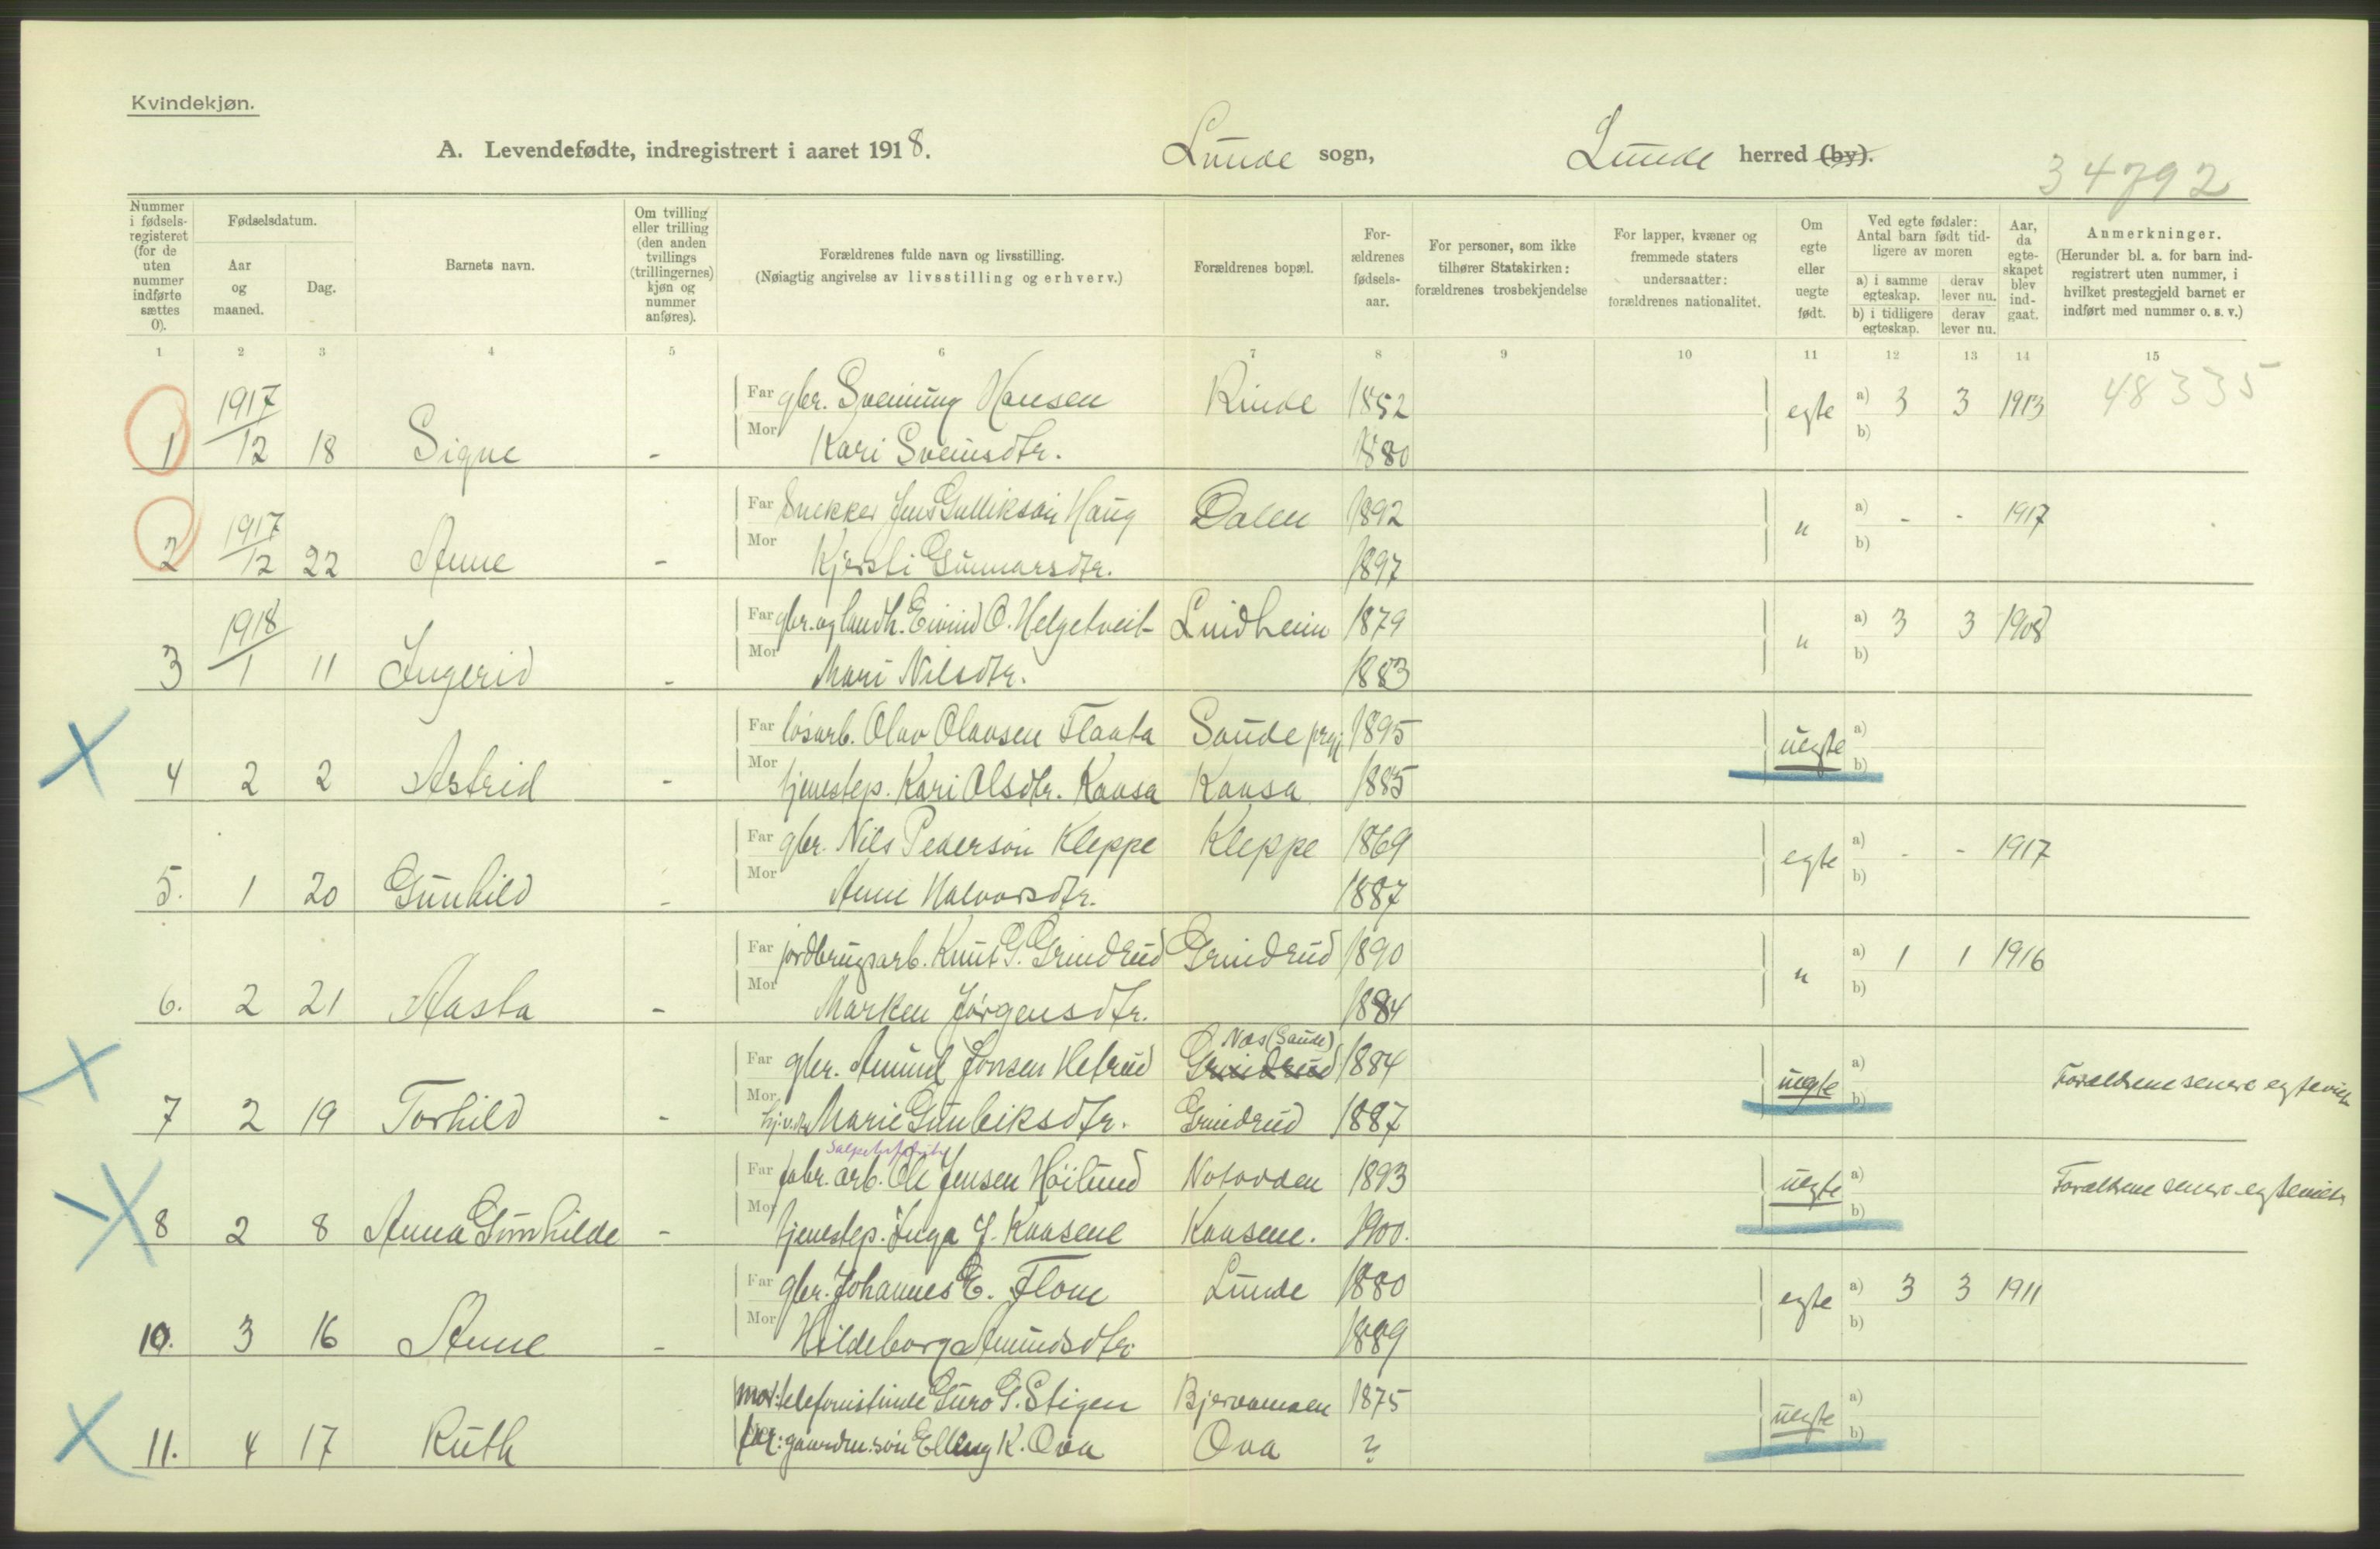 Kvindekjøn.
A. Levendefødte, indregistrert i aaret 1918. Lunde sogn, Lunde herred (by).
34792
Nummer i fødsels-registeret (for de uten nummer indførte sættes 0).
Fødselsdatum.
Aar og maaned.
Dag.
Barnets navn.
Om tvilling eller trilling (den anden tvillings (trillingernes) kjøn og nummer anføres).
Forældrenes fulde navn og livsstilling.
(Nøiagtig angivelse av livsstilling og erhverv.)
Forældrenes bopæl.
For-ældrenes fødsels-aar.
For personer, som ikke tilhører Statskirken: forældrenes trosbekjendelse
For lapper, kvæner og fremmede staters undersaatter: forældrenes nationalitet.
Om egte eller uegte født.
Ved egte fødsler: Antal barn født tid-ligere av moren
a) i samme egteskap. derav lever nu.
b) i tidligere egteskap. derav lever nu.
Aar, da egte-skapet blev ind-gaat.
Anmerkninger.
(Herunder bl. a. for barn ind-registrert uten nummer, i hvilket prestegjeld barnet er indført med nummer o. s. v.)
1 2 3 4 5 6 7 8 9 10 11 12 13 14 15
48335
Far gbr. Svenung Hansen Rinde 1852 egte a) 3 3 1913
1 1917/12 18 Signe - Mor Kari Svensdtr. 1880 b)
Far Snekker Jens Gulliksøn Haug Dalen 1892 " a) - - 1917
2 1917/12 22 Anne - Mor Kjersti Gunnarsdtr. 1897 b)
Far gbr. og landh. Eivind O. Helgetveit Lindheim 1879 " a) 3 3 1908
3 1918/1 11 Ingerid - Mor Mari Nilsdtr. 1883 b)
Far løsarb. Olav Olavsen Flaata Saude prgj 1895 uegte a)
4 2 2 Astrid - Mor tjenestep. Kari Olsdtr. Kaasa Kaasa 1885 b)
Far gbr. Nils Pedersøn Kleppe Kleppe 1869 egte a) - - 1917
5. 1 20 Gunhild - Mor Anne Halvorsdtr. 1887 b)
Far jordbrugsarb. Knut G. Grindrud Grindrud 1890 " a) 1 1 1916
6. 2 21 Aasta - Mor Marken Jørgensdtr. 1884 b)
Nes (Saude)
Far gbr. Amund Jonsen Hetrud Grindrud 1884 uegte a) Forældrene senere egteviet
7 2 19 Torhild - Mor Marie Gunleiksdtr. Grindrud 1887 b)
Salpeterfabrik
Far fabr. arb. Ole Jensen Höilund Notodden 1893 uegte a) Forældrene senere egteviet
8 2 8 Anna Gunhilde - Mor tjenestep. Inga J. Kaasene Kaasene. 1900. b)
Far gbr. Johannes E. Flom Lunde 1880 egte a) 3 3 1911
10. 3 16 Anne - Mor Hildeborg Amundsdtr. 1889 b)
mor: telefonistinde Guro G. Stigen Bjervamoen 1875 uegte a)
11. 4 17 Ruth far: gaardm.søn Elling K. Ova Ova ? b)